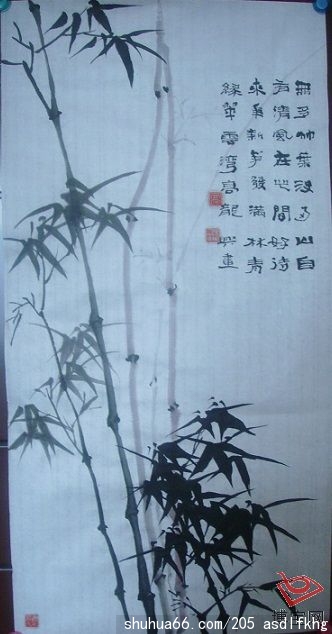 無多竹葉沒多山自
有清風在此間好待
來年新筍發滿林青
綠翠雲灣高龍 畫
shuhua66.com/205 asdlfkhg